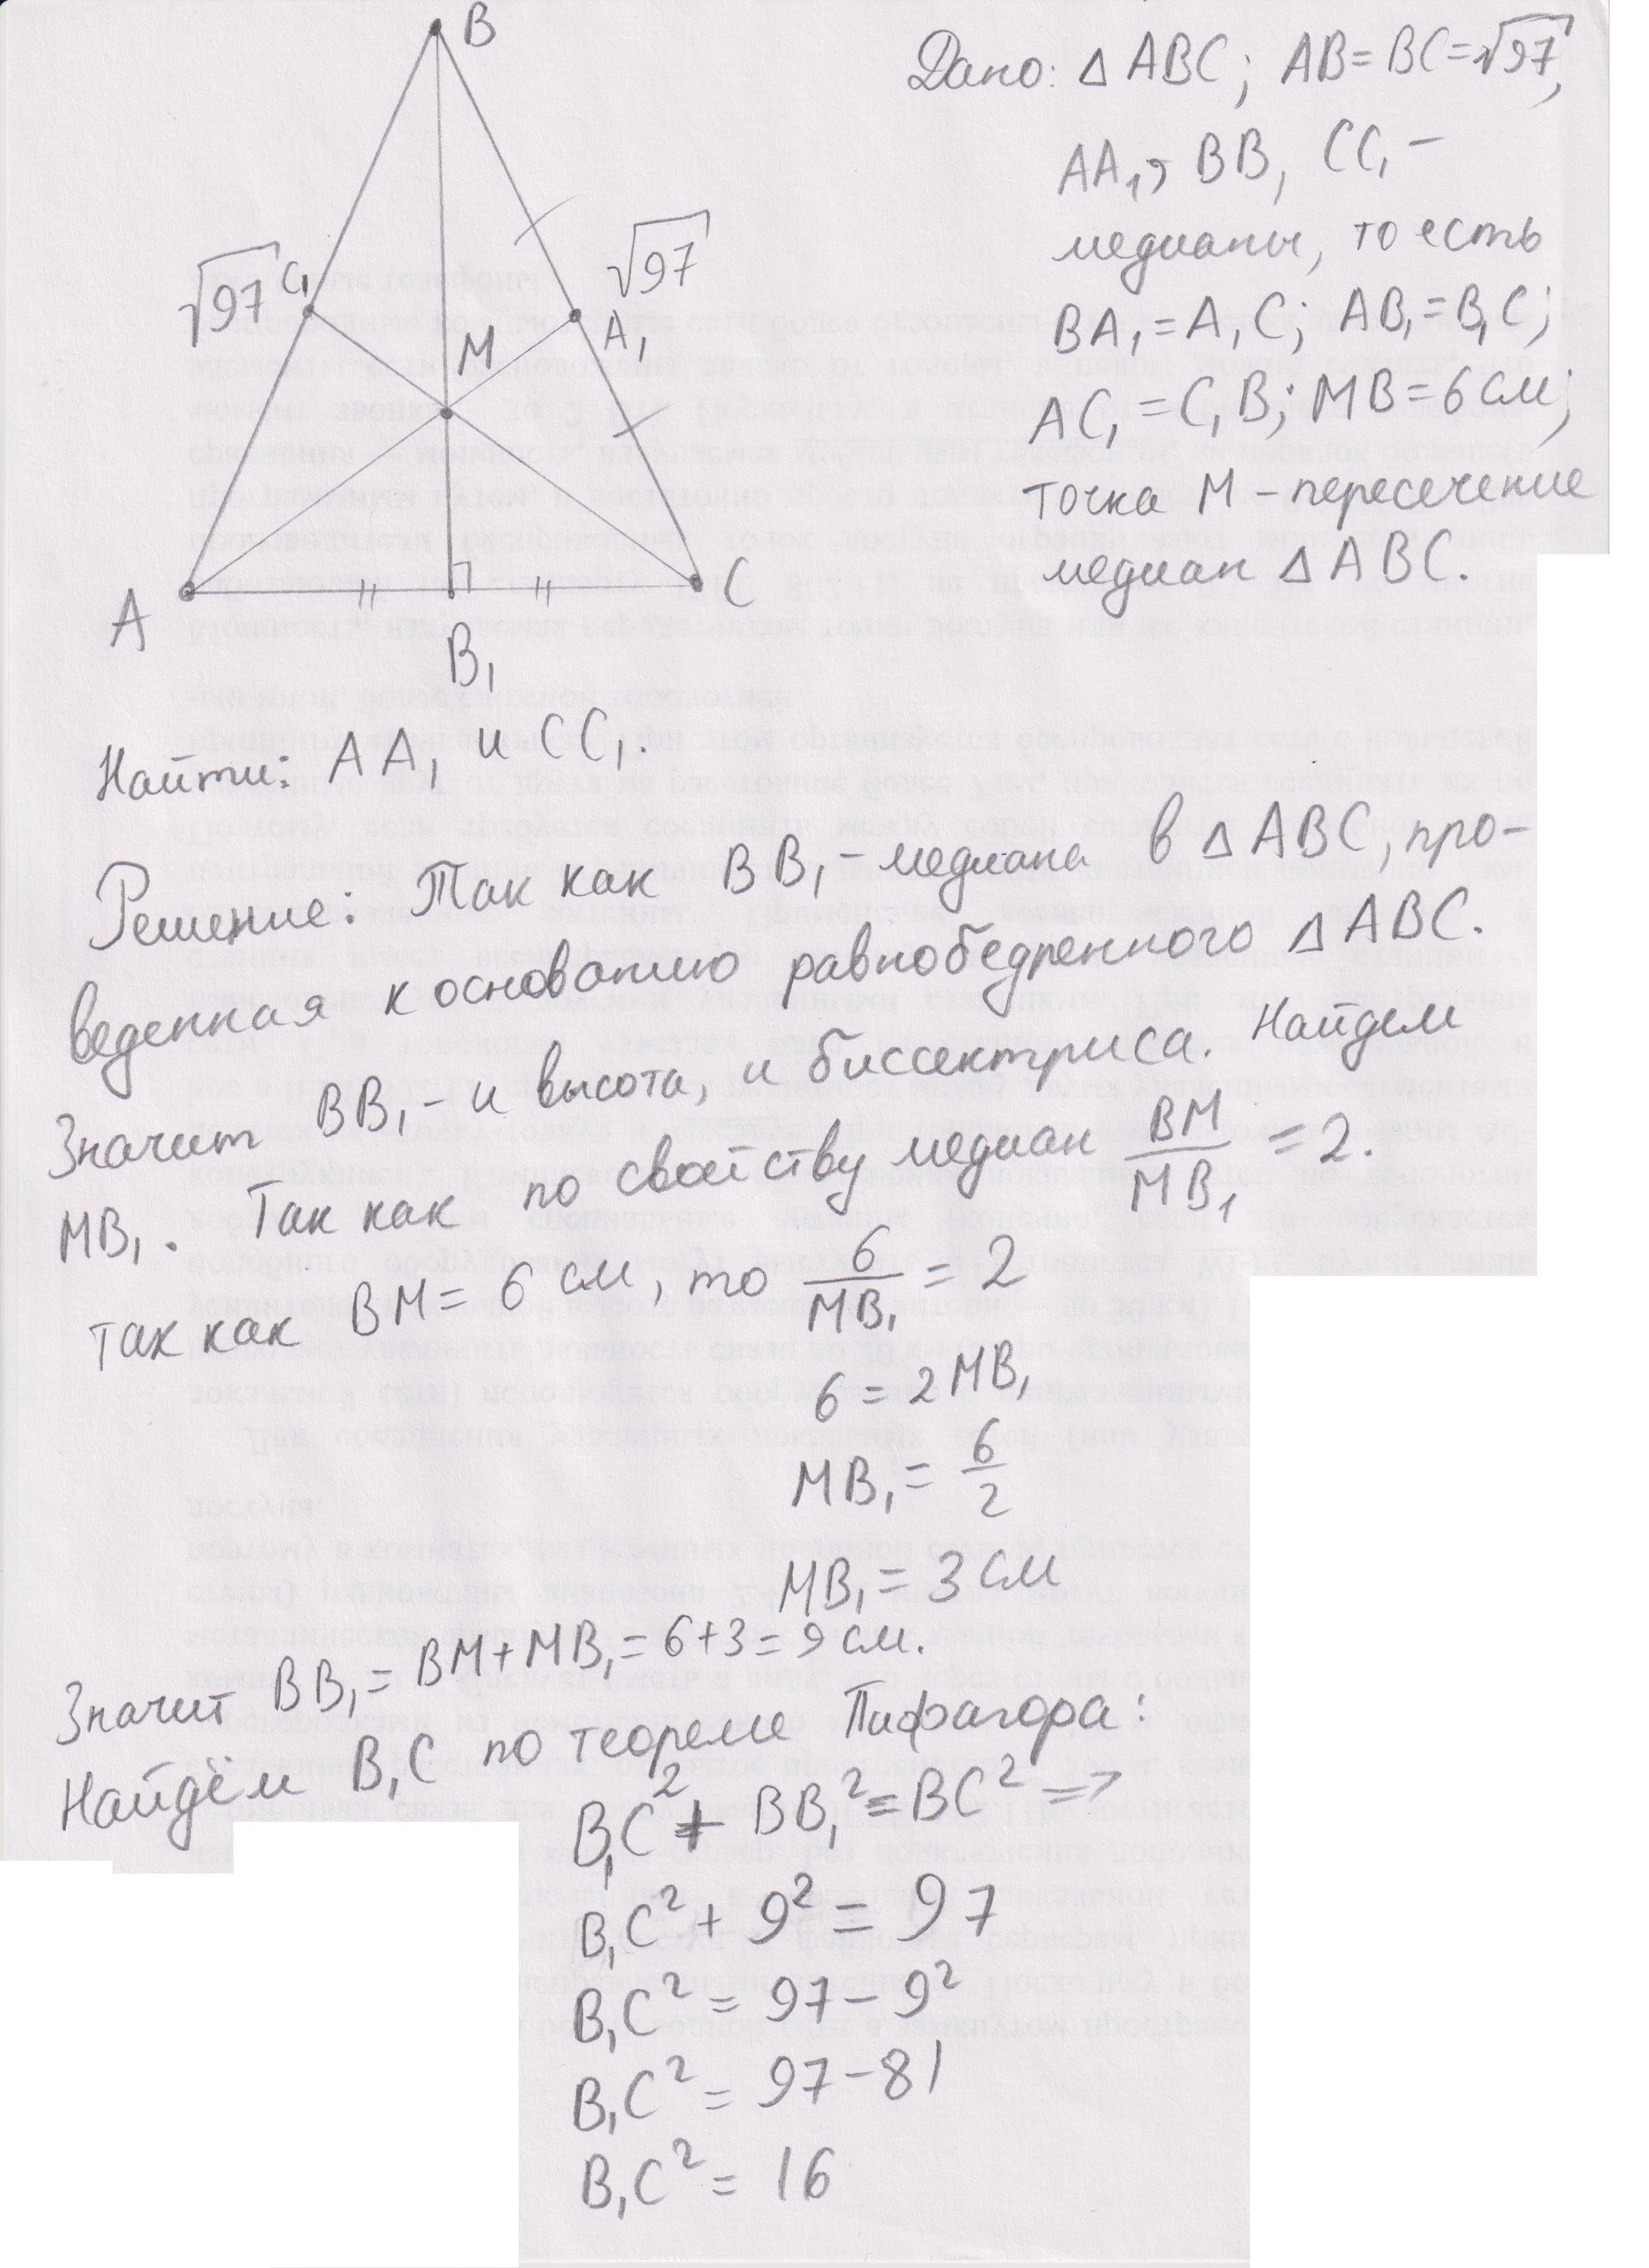 B
√97
C₁
√97
A₁
M
A
C
B₁
Дано: △ ABC; AB = BC = √97,
AA₁, BB₁ CC₁ –
медианы, то есть
BA₁ = A₁C; AB₁ = B₁C;
AC₁ = C₁B; MB = 6 см;
точка M – пересечение
медиан △ABC.
Найти: AA₁ и CC₁.
Решение: Так как BB₁ – медиана в △ABC, про-
веденная к основанию равнобедренного △ABC.
Значит BB₁ – и высота, и биссектриса. Найдем
MB₁. Так как по свойству медиан BM/MB₁ = 2.
так как BM = 6 см, то 6/MB₁ = 2
6 = 2MB₁
MB₁ = 6/2
MB₁ = 3 см
Значит BB₁ = BM + MB₁ = 6+3 = 9 см.
Найдём B₁C по теореме Пифагора:
B₁C² + BB₁² = BC² =>
B₁C² + 9² = 97
B₁C² = 97 – 9²
B₁C² = 97 – 81
B₁C² = 16